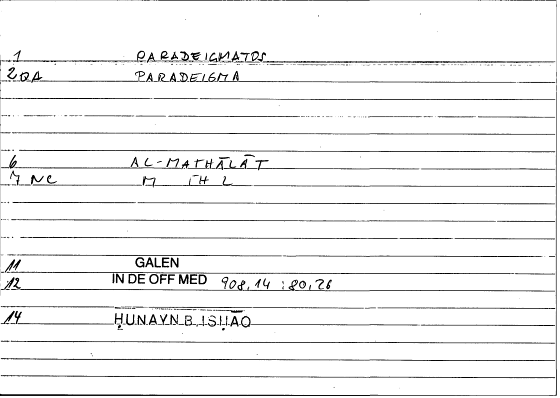 1 PARADEIGMATOS
2 QA PARADEIGMA
6 AL-MATHĀLĀT
7 NC M TH L
11 GALEN
12 IN DE OFF MED 908,14 :80,26
14 ḤUNAYN B. ISḤĀQ